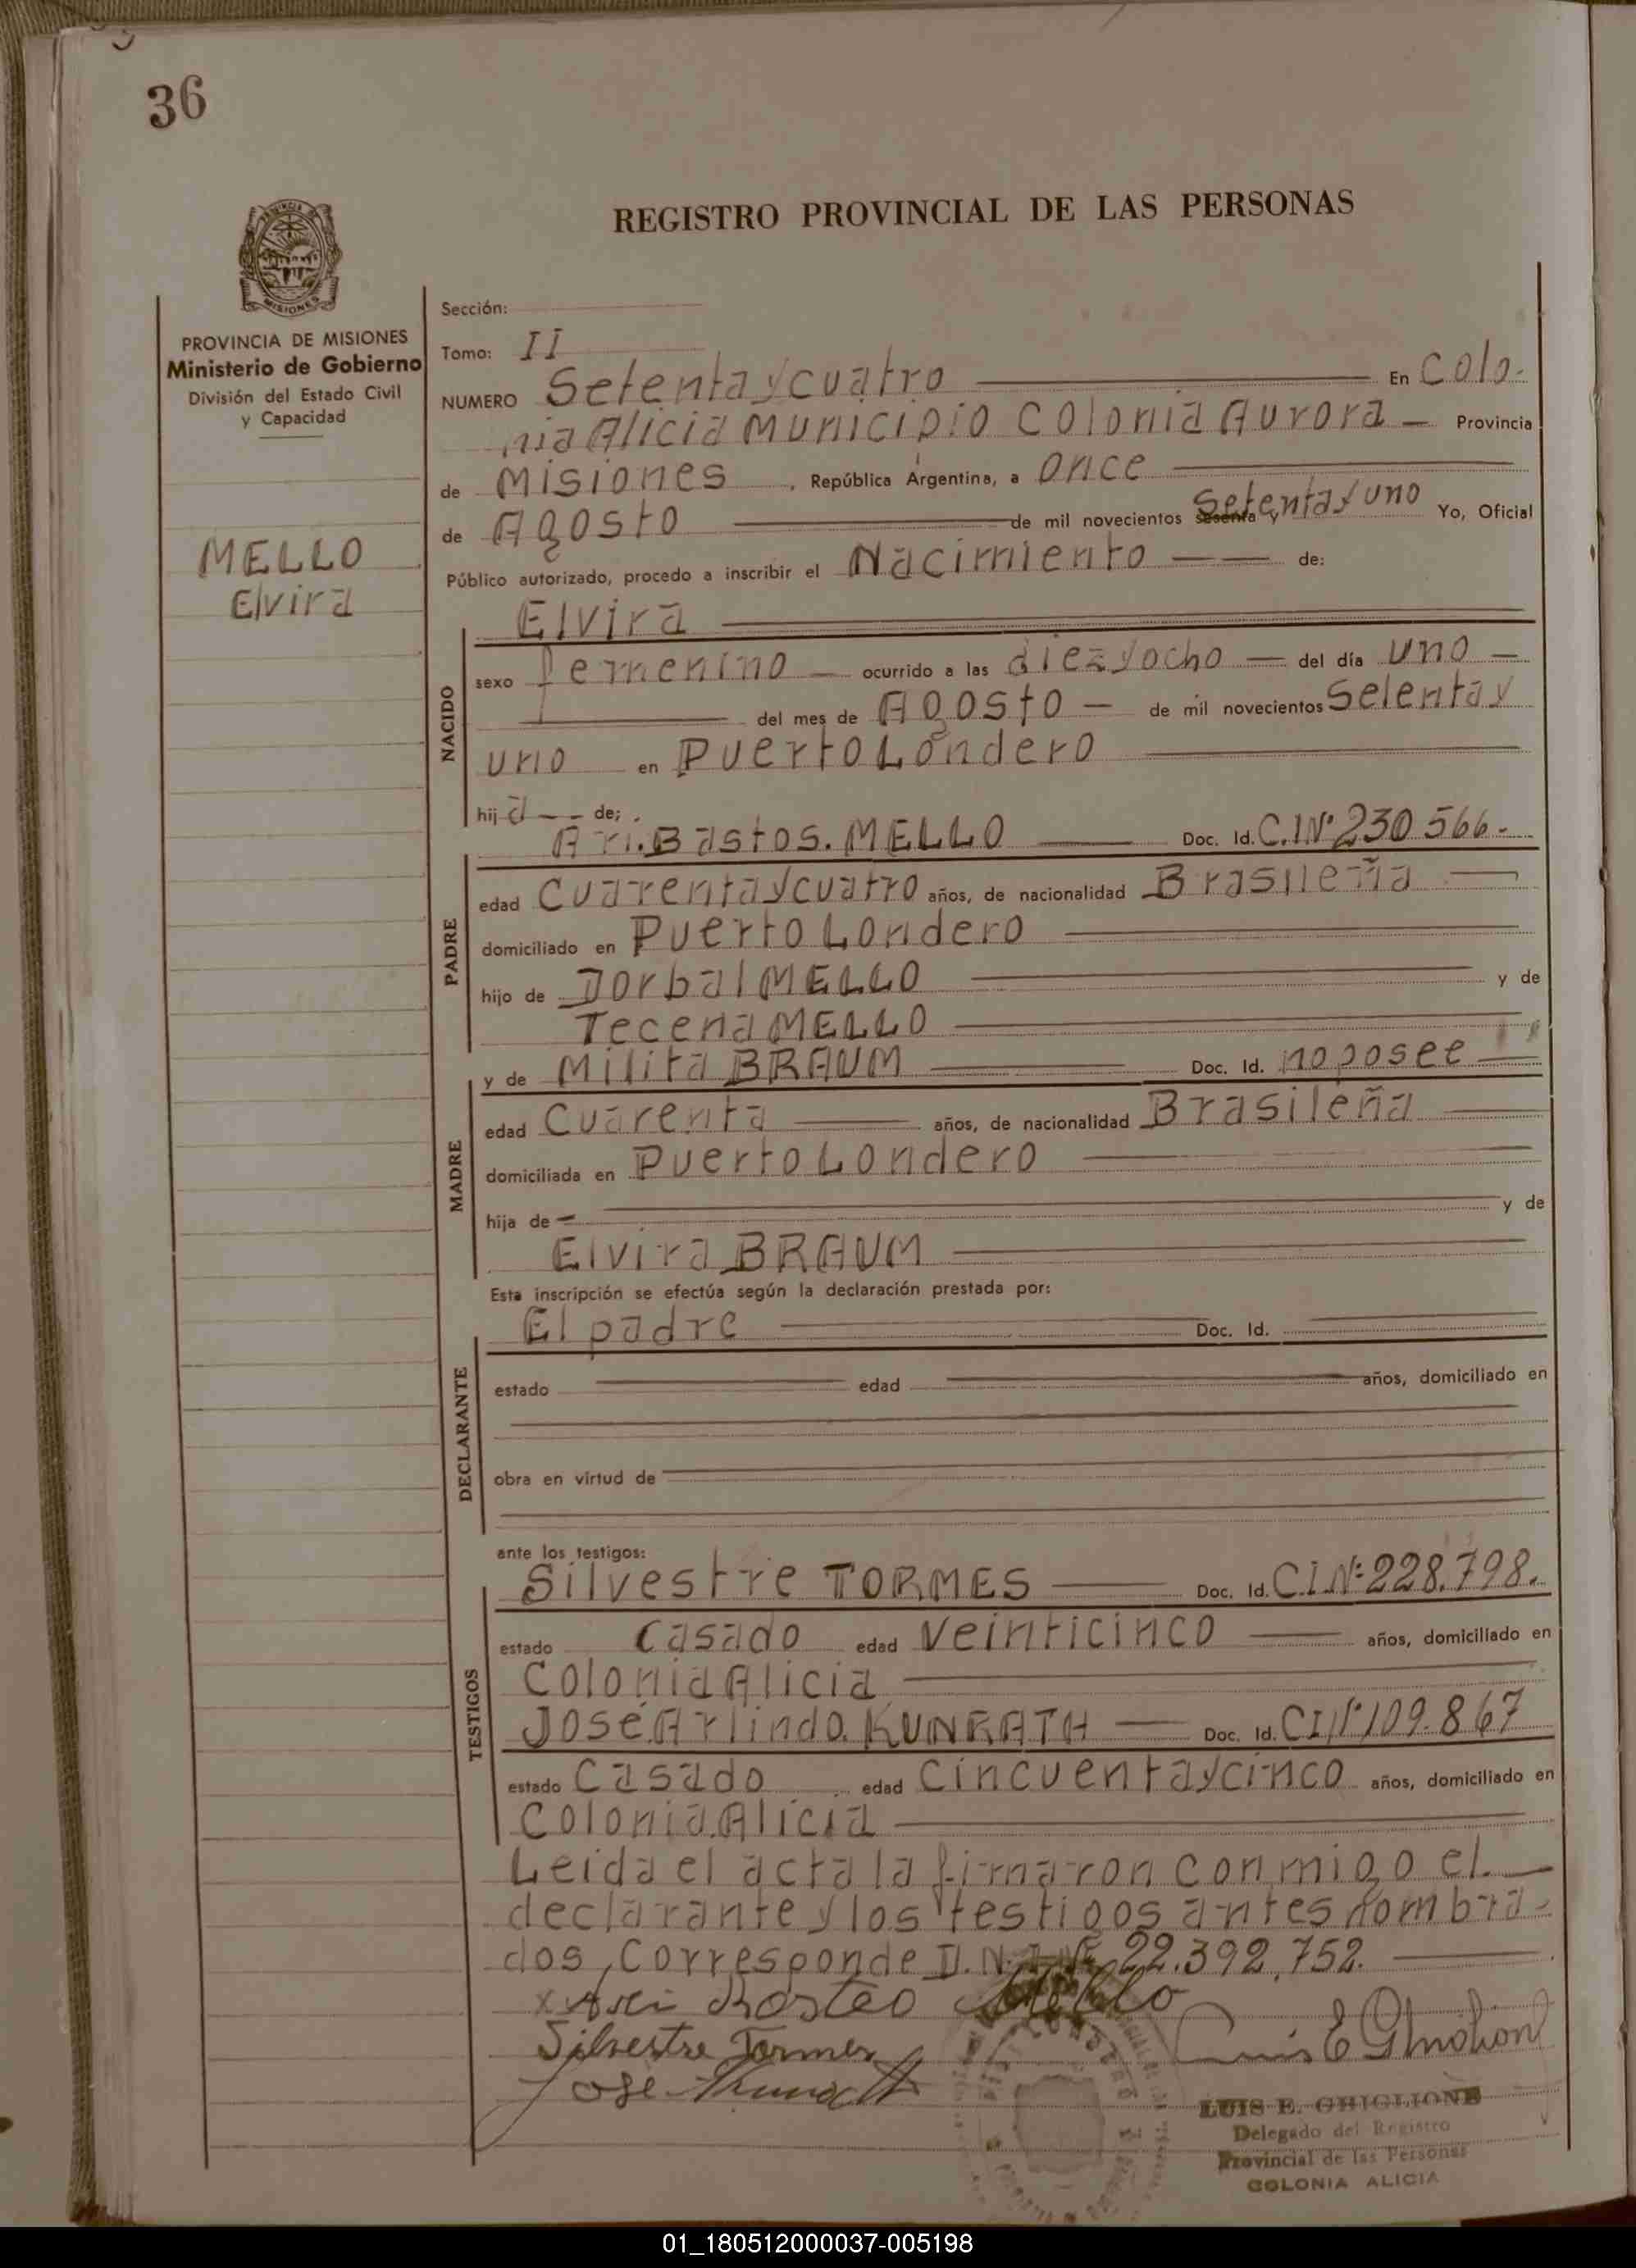 36
REGISTRO PROVINCIAL DE LAS PERSONAS
PROVINCIA DE MISIONES
Ministerio de Gobierno
División del Estado Civil
y Capacidad
MELLO
Elvira
Sección:
Tomo: II
NUMERO Setenta y cuatro En Colo-
nia Alicia Municipio Colonia Aurora Provincia
de Misiones, República Argentina, a once
de Agosto de mil novecientos sesenta y Setenta y uno Yo, Oficial
Público autorizado, procedo a inscribir el Nacimiento de:
NACIDO
Elvira
sexo femenino ocurrido a las diez y ocho del día uno
del mes de Agosto de mil novecientos Setenta y
uno en Puerto Londero
hija de;
PADRE
Ari. Bastos. MELLO Doc. Id. C.I Nº 230 566.-
edad Cuarenta y cuatro años, de nacionalidad Brasileña
domiciliado en Puerto Londero
hijo de Dorbal MELLO y de
Tecena MELLO
MADRE
y de Milita BRAUM Doc. Id. no posee
edad Cuarenta años, de nacionalidad Brasileña
domiciliada en Puerto Londero
hija de y de
Elvira BRAUM
Esta inscripción se efectúa según la declaración prestada por:
DECLARANTE
El padre Doc. Id.
estado edad años, domiciliado en
obra en virtud de
ante los testigos:
TESTIGOS
Silvestre TORMES Doc. Id. C.I.Nº 228.798.
estado Casado edad Veinticinco años, domiciliado en
Colonia Alicia
José Arlindo. KUNRATH Doc. Id. CI Nº 109.867
estado Casado edad Cincuenta y cinco años, domiciliado en
Colonia Alicia
Leida el acta la firmaron conmigo el.
declarante y los testigos antes nombra-
dos, Corresponde D.N.I. Nº 22.392.752.
Mello
Silvestre Tormes
Jose Kunrath
LUIS E. GHIGLIONE
Delegado del Registro
Provincial de las Personas
COLONIA ALICIA
01_180512000037-005198